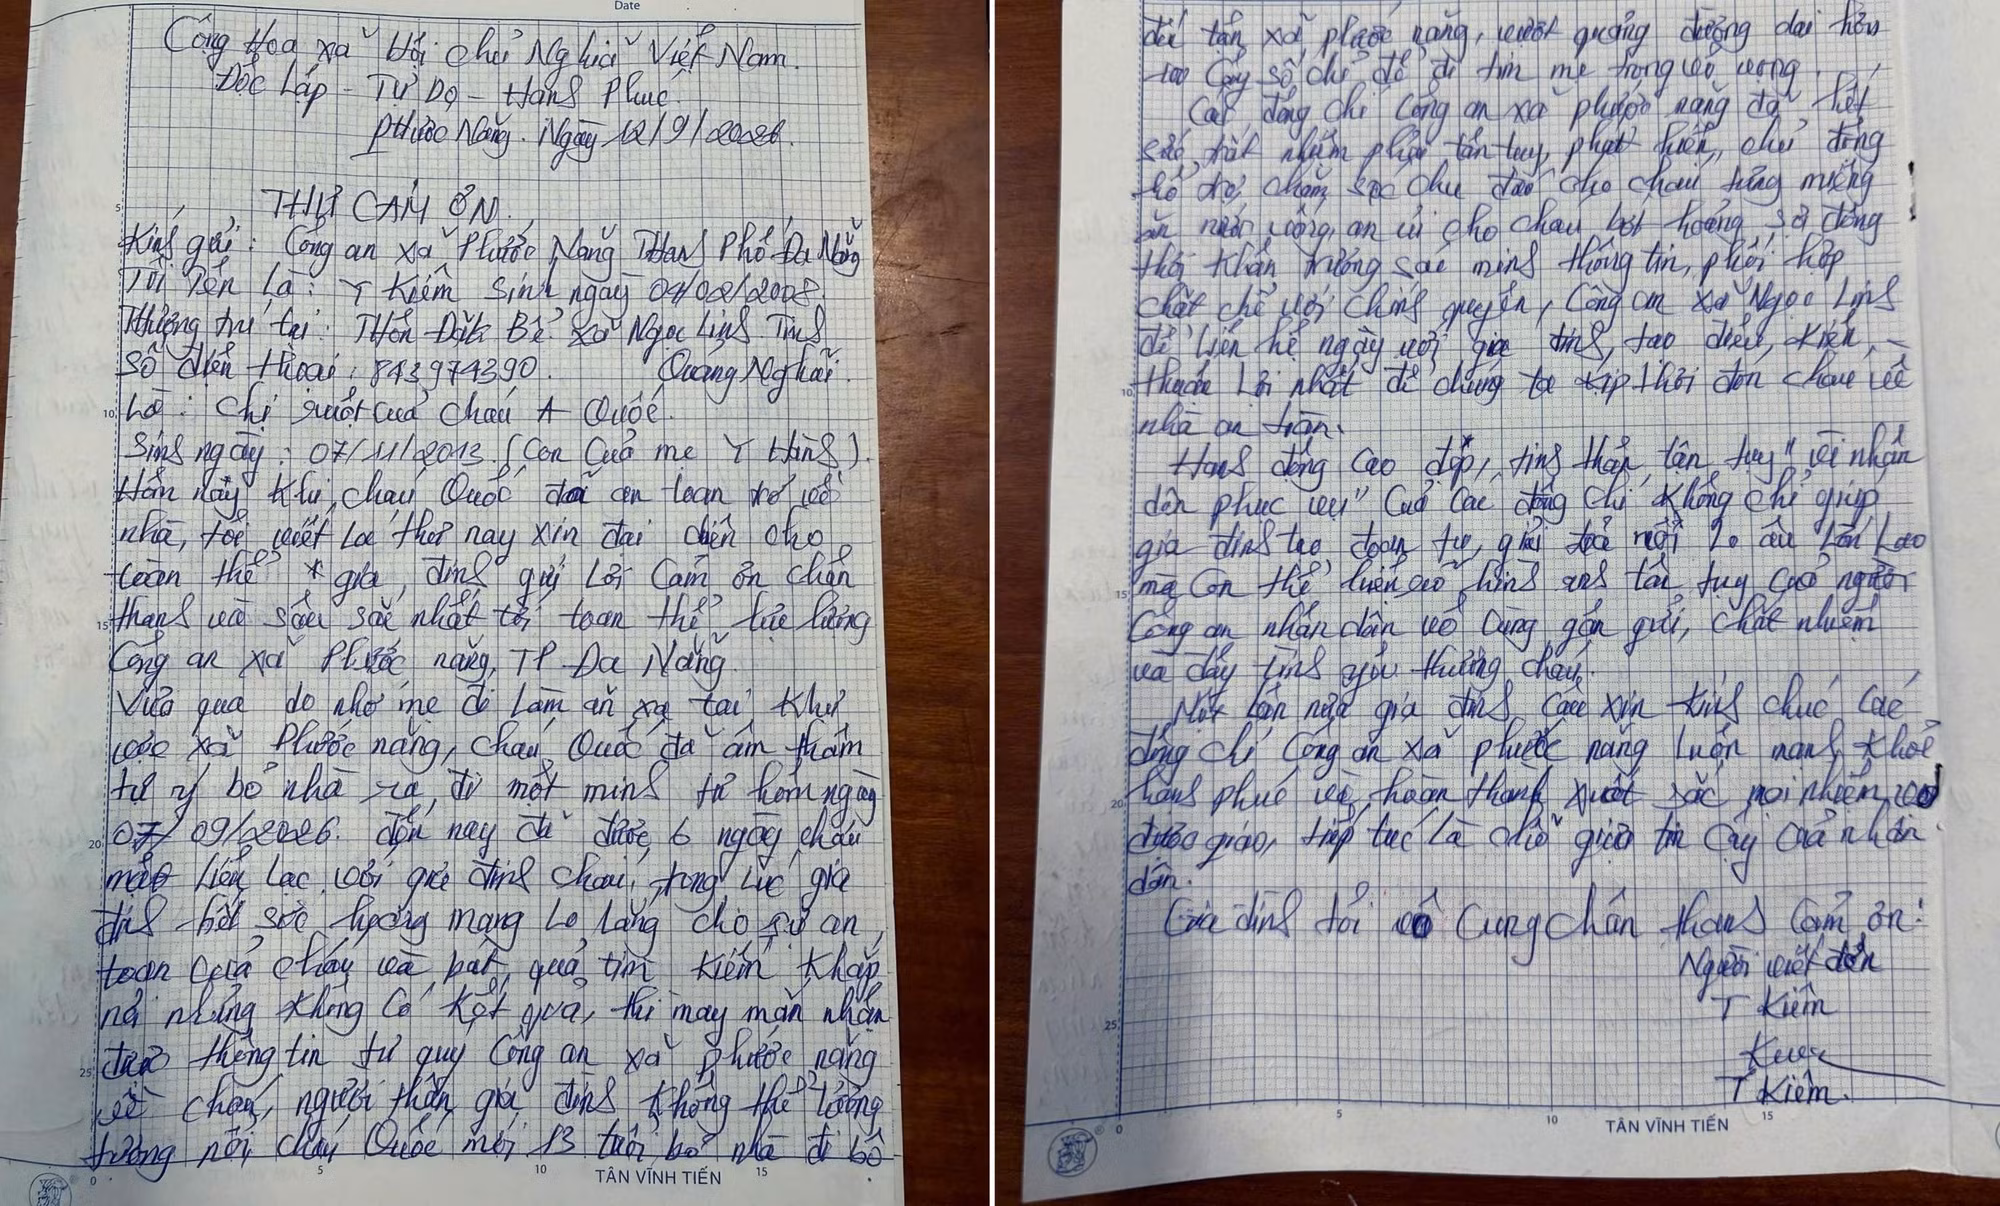 Date
Cộng Hoa xã hội chủ Nghĩa Việt Nam.
Độc Lập - Tự Do - Hanh Phuc.
Phước Năng. Ngày 12/9/2026.
THƯ CẢM ƠN.
Kính gửi: Công an xã Phước Năng Thành Phố Đa Nẵng
Tôi Tên Là: Y Kiêm Sinh ngày 04/02/2008.
Thường trú tại: Thôn Đăk Bể xã Ngọc Linh Tỉnh
Số điện thoại: 843974390. Quảng Nghãi.
Là: chị ruột của cháu A Quốc.
Sinh ngày: 07/11/2013. (Con Của mẹ Y Hình).
Hôm nay khi cháu Quốc đã an toan trở về
nhà, tôi viết Lá thơ nay xin đai diện cho
toàn thể gia đình gửi Lời Cảm ơn chân
thanh và sâu sắc nhất tới toan thể lực lượng
Công an xã Phước năng, TP Đa Nẵng.
Vừa qua do nhớ mẹ đi Làm ăn xa tại khu
vực xã Phước năng, cháu Quốc đã âm thầm
tự ý bỏ nhà ra đi một mình từ hôm ngày
07/09/2026. đến nay đã được 6 ngày cháu
mất Liên Lạc với gia đình cháu, trong Lúc gia
đình hết sức hoảng mạng Lo Lắng cho sự an
toan của cháy và bất quả tìm kiếm khắp
nơi nhưng không Có kết quả, thì may mắn nhận
được thông tin từ quý Công an xã phước năng
về cháu, người thân gia đình không thể lường
tượng nổi cháu Quốc mới 13 tuổi bỏ nhà đi bộ
đến tận xã phước năng, vượt quảng đường dai hơn
100 Cây số chỉ để đi tìm mẹ trong vô vọng.
Các đồng chí Công an xã phước năng đã hết
sức trách nhiệm phục tận tụy, phát hiện, chủ động
hỗ trợ chăm sọc chu đáo cho cháu từng miếng
ăn nước uống, an ủi cho cháu bớt hoảng sợ đồng
thời khẩn trương sác minh thông tin, phối hợp
chặt chẽ với chính quyền, Công an xã Ngọc Linh
để Liên hệ ngày với gia đình, tạo điều kiện
thuận Lời nhất để chúng ta kịp thời đón cháu về
nhà an toàn.
Hanh động Cao đẹp, tinh thần tận tụy "vì nhân
dân phục vụ" Của Các đồng chí không chỉ giúp
gia đình tro đoan tụ, giải toả nỗi Lo âu Lớn Lao
mà Còn thể hiện rõ hình anh tận tụy của người
Công an nhân dân vô Cùng gần gũi, chất nhiệm
và đầy tình yêu thương cháu.
Một Lần nữa gia đình Cáu xin kính chúc Các
đồng chí Công an xã phước năng Luôn manh khoẻ
hanh phúc và hoàn thành xuất sắc mọi nhiệm vụ
được giao, tiếp tục Là chỗ giữa tin Cậy Của nhân
dân.
Gia đình tôi vô Cùng chân thanh Cảm ơn!
Người viết đơn
Y Kiêm
Y Kiêm.
TÂN VĨNH TIẾN
TÂN VĨNH TIẾN